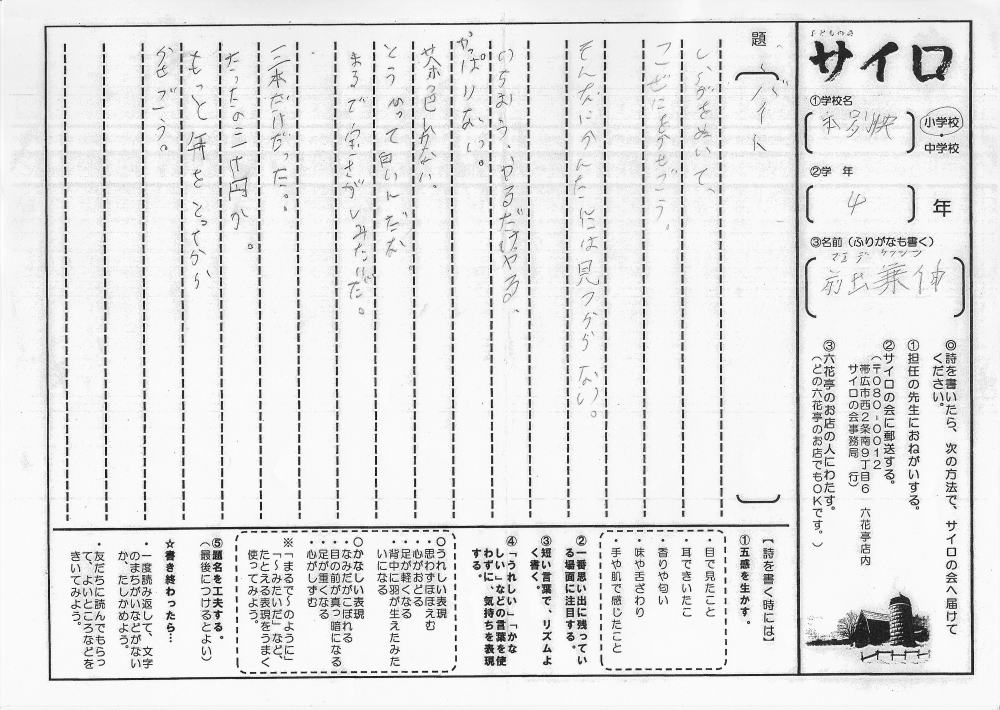 こどもの詩
サイロ
①学校名
本別快
小学校
・
中学校
②学年
4
年
③名前(ふりがなも書く)
マエデ
前出 乗伸
◎詩を書いたら、次の方法で、サイロの会へ届けて
ください。
①担任の先生におねがいする。
②サイロの会に郵送する。
(〒080-0012
帯広市西2条南9丁目6 六花亭店内
サイロの会事務局 (行)
③六花亭のお店の人にわたす。
(どの六花亭のお店でもOKです。)
題
バイト
しらがをぬいて、
こぜにをかせごう。
そんなにかんたんには見つからない。
のちおう、やるだけやる、
やっぱりないっ。
茶色しかない。
とうふって白いんだな
まるで宝さがしみたいだ。
三本だけだった。
たったの三十円か。
もっと年をとってから
かせごう。
【詩を書く時には】
①五感を生かす。
・目で見たこと
・耳できいたこと
・香りや匂い
・味や舌ざわり
・手や肌で感じたこと
②一番思い出に残ってい
る場面に注目する。
③短い言葉で、リズムよ
く書く。
④「うれしい」「かな
しい」などの言葉を使
わずに、気持ちを表現
する。
○うれしい表現
・思わずほほえむ
・心がおどる
・足が軽くなる
・背中に羽が生えたみた
いになる
○かなしい表現
・なみだがこぼれる
・目の前が真っ暗になる
・足が重くなる
・心がしずむ
※「まるで~のように」
「~みたいだ」など、
たとえる表現をうまく
使ってみよう。
⑤題名を工夫する。
(最後につけるとよい)
☆書き終わったら…
・一度読み返して、文字
のまちがいなどがない
か、たしかめよう。
・友だちに読んでもらっ
て、よいところなどを
きいてみよう。